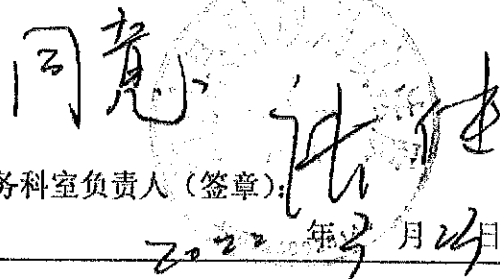 同意
张佳
务科室负责人（签章）：
2022年3月25日